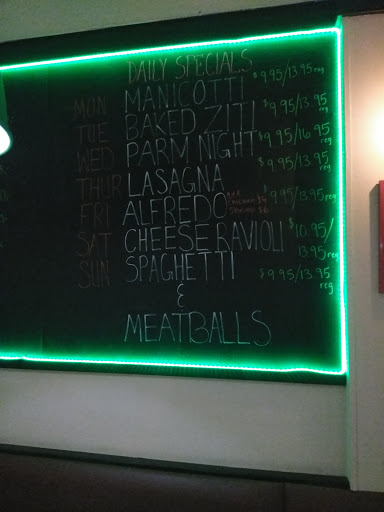 DAILY SPECIALS
MON MANICOTTI $9.95/13.95 reg
TUE BAKED ZITI $9.95/13.95 reg
WED PARM NIGHT $9.95/16.95 reg
THUR LASAGNA $9.95/13.95 reg
FRI ALFREDO ADD CHICKEN $4 SHRIMP $6 $9.95/13.95 reg
SAT CHEESE RAVIOLI $10.95/13.95 reg
SUN SPAGHETTI $9.95/13.95 reg
&
MEATBALLS